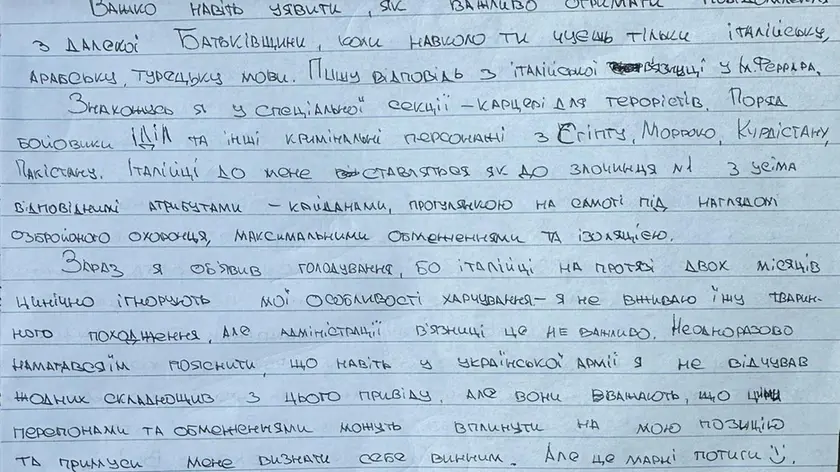 Важко навіть уявити, як важливо отримати
з далекої Батьківщини, коли навколо ти чуєш тільки італійську,
арабську, турецьку мови. Пишу відповідь з італійської вʼязниці у м. Феррара.
Знахожусь я у спеціальної секції – карцері для терорістів. Поряд
бойовики ІДІЛ та інші кримінальні персонажі з Єгіпту, Морроко, Курдістану,
Пакістану. Італійці до мене ставляться як до злочинця №1 з усіма
відповідними атрибутами – кайданами, прогулянкою на самоті під наглядом
озбройоного охоронця, максимальними обмеженнями та ізоляцією.
Зараз я обʼявив голодування, бо італійці на протязі двох місяців
цинічно ігнорують мої особливості харчування – я не вживаю їжу тварин-
ного походження, але адміністрації вʼязниці це не важливо. Неодноразово
намагався їм пояснити, що навіть у української армії я не відчував
жодних складнощів з цього привіду, але вони вважають, що цими
перепонами та обмеженнями можуть вплинути на мою позицію
та примуси мене визнати себе винним. Але це марні потиги :)